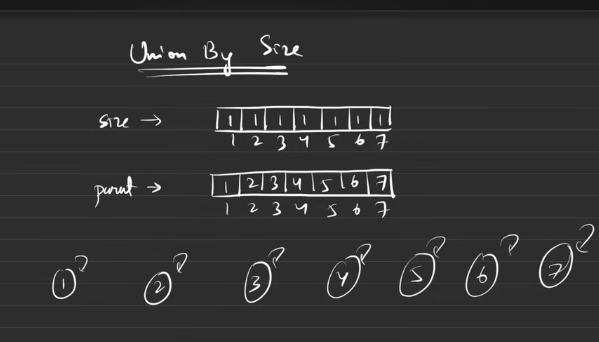 Union By Size
size → 1 1 1 1 1 1 1
1 2 3 4 5 6 7
parent → 1 2 3 4 5 6 7
1 2 3 4 5 6 7
1 2 3 4 5 6 7